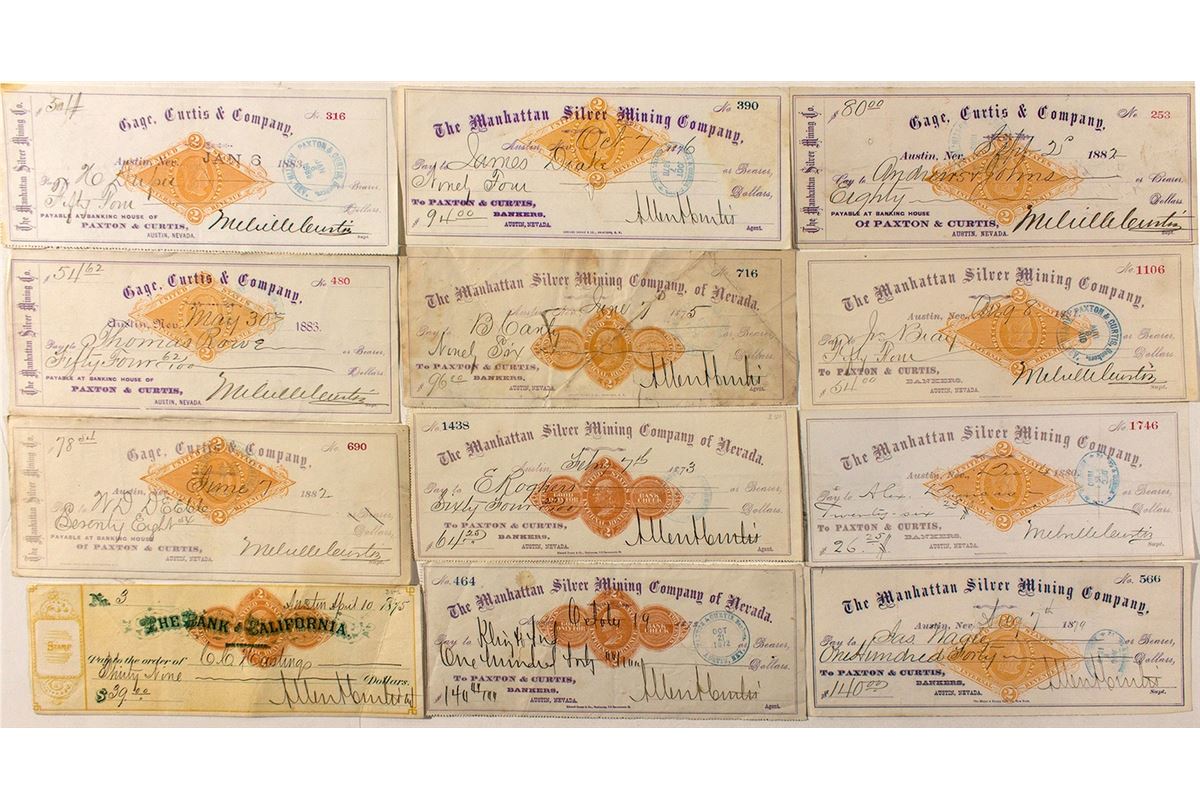 The Manhattan Silver Mining Co.
Gage, Curtis & Company,
No. 316
Austin, Nev. JAN 6 1883
Pay to
or Bearer,
Fifty Four
Dollars,
PAYABLE AT BANKING HOUSE OF
PAXTON & CURTIS,
AUSTIN, NEVADA.
Melville Curtis
Supt.
No. 390
The Manhattan Silver Mining Company,
Austin, Nev. Oct 7 1876
Pay to James Drake
or Bearer,
Ninety Four
Dollars,
To PAXTON & CURTIS,
BANKERS,
AUSTIN, NEVADA.
$94.00
Allen A Curtis
Agent.
The Manhattan Silver Mining Co.
$80.00
Gage, Curtis & Company,
No. 253
Austin, Nev. 1882
Pay to Andrews & Johns
or Bearer,
Eighty
Dollars,
PAYABLE AT BANKING HOUSE
Of PAXTON & CURTIS,
AUSTIN, NEVADA.
Melville Curtis
Supt.
The Manhattan Silver Mining Co.
$54 62
Gage, Curtis & Company,
No. 480
Austin, Nev. May 30th 1883.
Pay to Thomas Rowe
or Bearer,
Fifty Four 62/100
Dollars
PAYABLE AT BANKING HOUSE OF
PAXTON & CURTIS,
AUSTIN, NEVADA
Melville Curtis
Supt.
No. 716
The Manhattan Silver Mining Company, of Nevada.
Austin, June 7th 1875
Pay to
or Bearer,
Ninety Six
Dollars,
To PAXTON & CURTIS,
BANKERS,
AUSTIN, NEVADA.
$96.00
Allen A Curtis
Agent.
No. 1106
The Manhattan Silver Mining Company, of Nevada.
Austin, Nev.
Pay to Jno Bray
or Bearer,
Fifty Four
Dollars,
To PAXTON & CURTIS,
BANKERS,
AUSTIN, NEVADA.
$54.00
Melville Curtis
Supt.
The Manhattan Silver Mining Co.
Gage, Curtis & Company,
No. 690
Austin, Nev. June 7 1882
Pay to
or Bearer,
Seventy Eight
Dollars,
PAYABLE AT BANKING HOUSE
Of PAXTON & CURTIS,
AUSTIN, NEVADA.
Melville Curtis
Supt.
No. 1438
The Manhattan Silver Mining Company of Nevada.
Austin, Feb. 7th 1873
Pay to E Rogers
or Bearer,
Sixty Four
Dollars,
To PAXTON & CURTIS,
BANKERS,
AUSTIN, NEVADA.
$64.25
Allen A Curtis
Agent.
No. 1746
The Manhattan Silver Mining Company,
Austin, Nev. 1880
Pay to Alex.
or Bearer,
Twenty-six
Dollars,
To PAXTON & CURTIS,
BANKERS,
AUSTIN, NEVADA.
$26.25
Melville Curtis
Supt.
No. 3
Austin April 10 1875
THE BANK of CALIFORNIA,
STAMP
Pay to the order of C. C. Hastings
Thirty Nine
Dollars.
$39.00
Allen A Curtis
No. 464
The Manhattan Silver Mining Company of Nevada.
October 19
Pay to
or Bearer,
One hundred forty 00/100
Dollars,
To PAXTON & CURTIS,
BANKERS,
AUSTIN, NEVADA.
Allen A Curtis
Agent.
No. 566
The Manhattan Silver Mining Company,
Austin, Nev. 1879
Pay to Jas Nagle
or Bearer,
One Hundred Forty
Dollars,
To PAXTON & CURTIS,
BANKERS,
AUSTIN, NEVADA.
$140.00
Allen A Curtis
Supt.